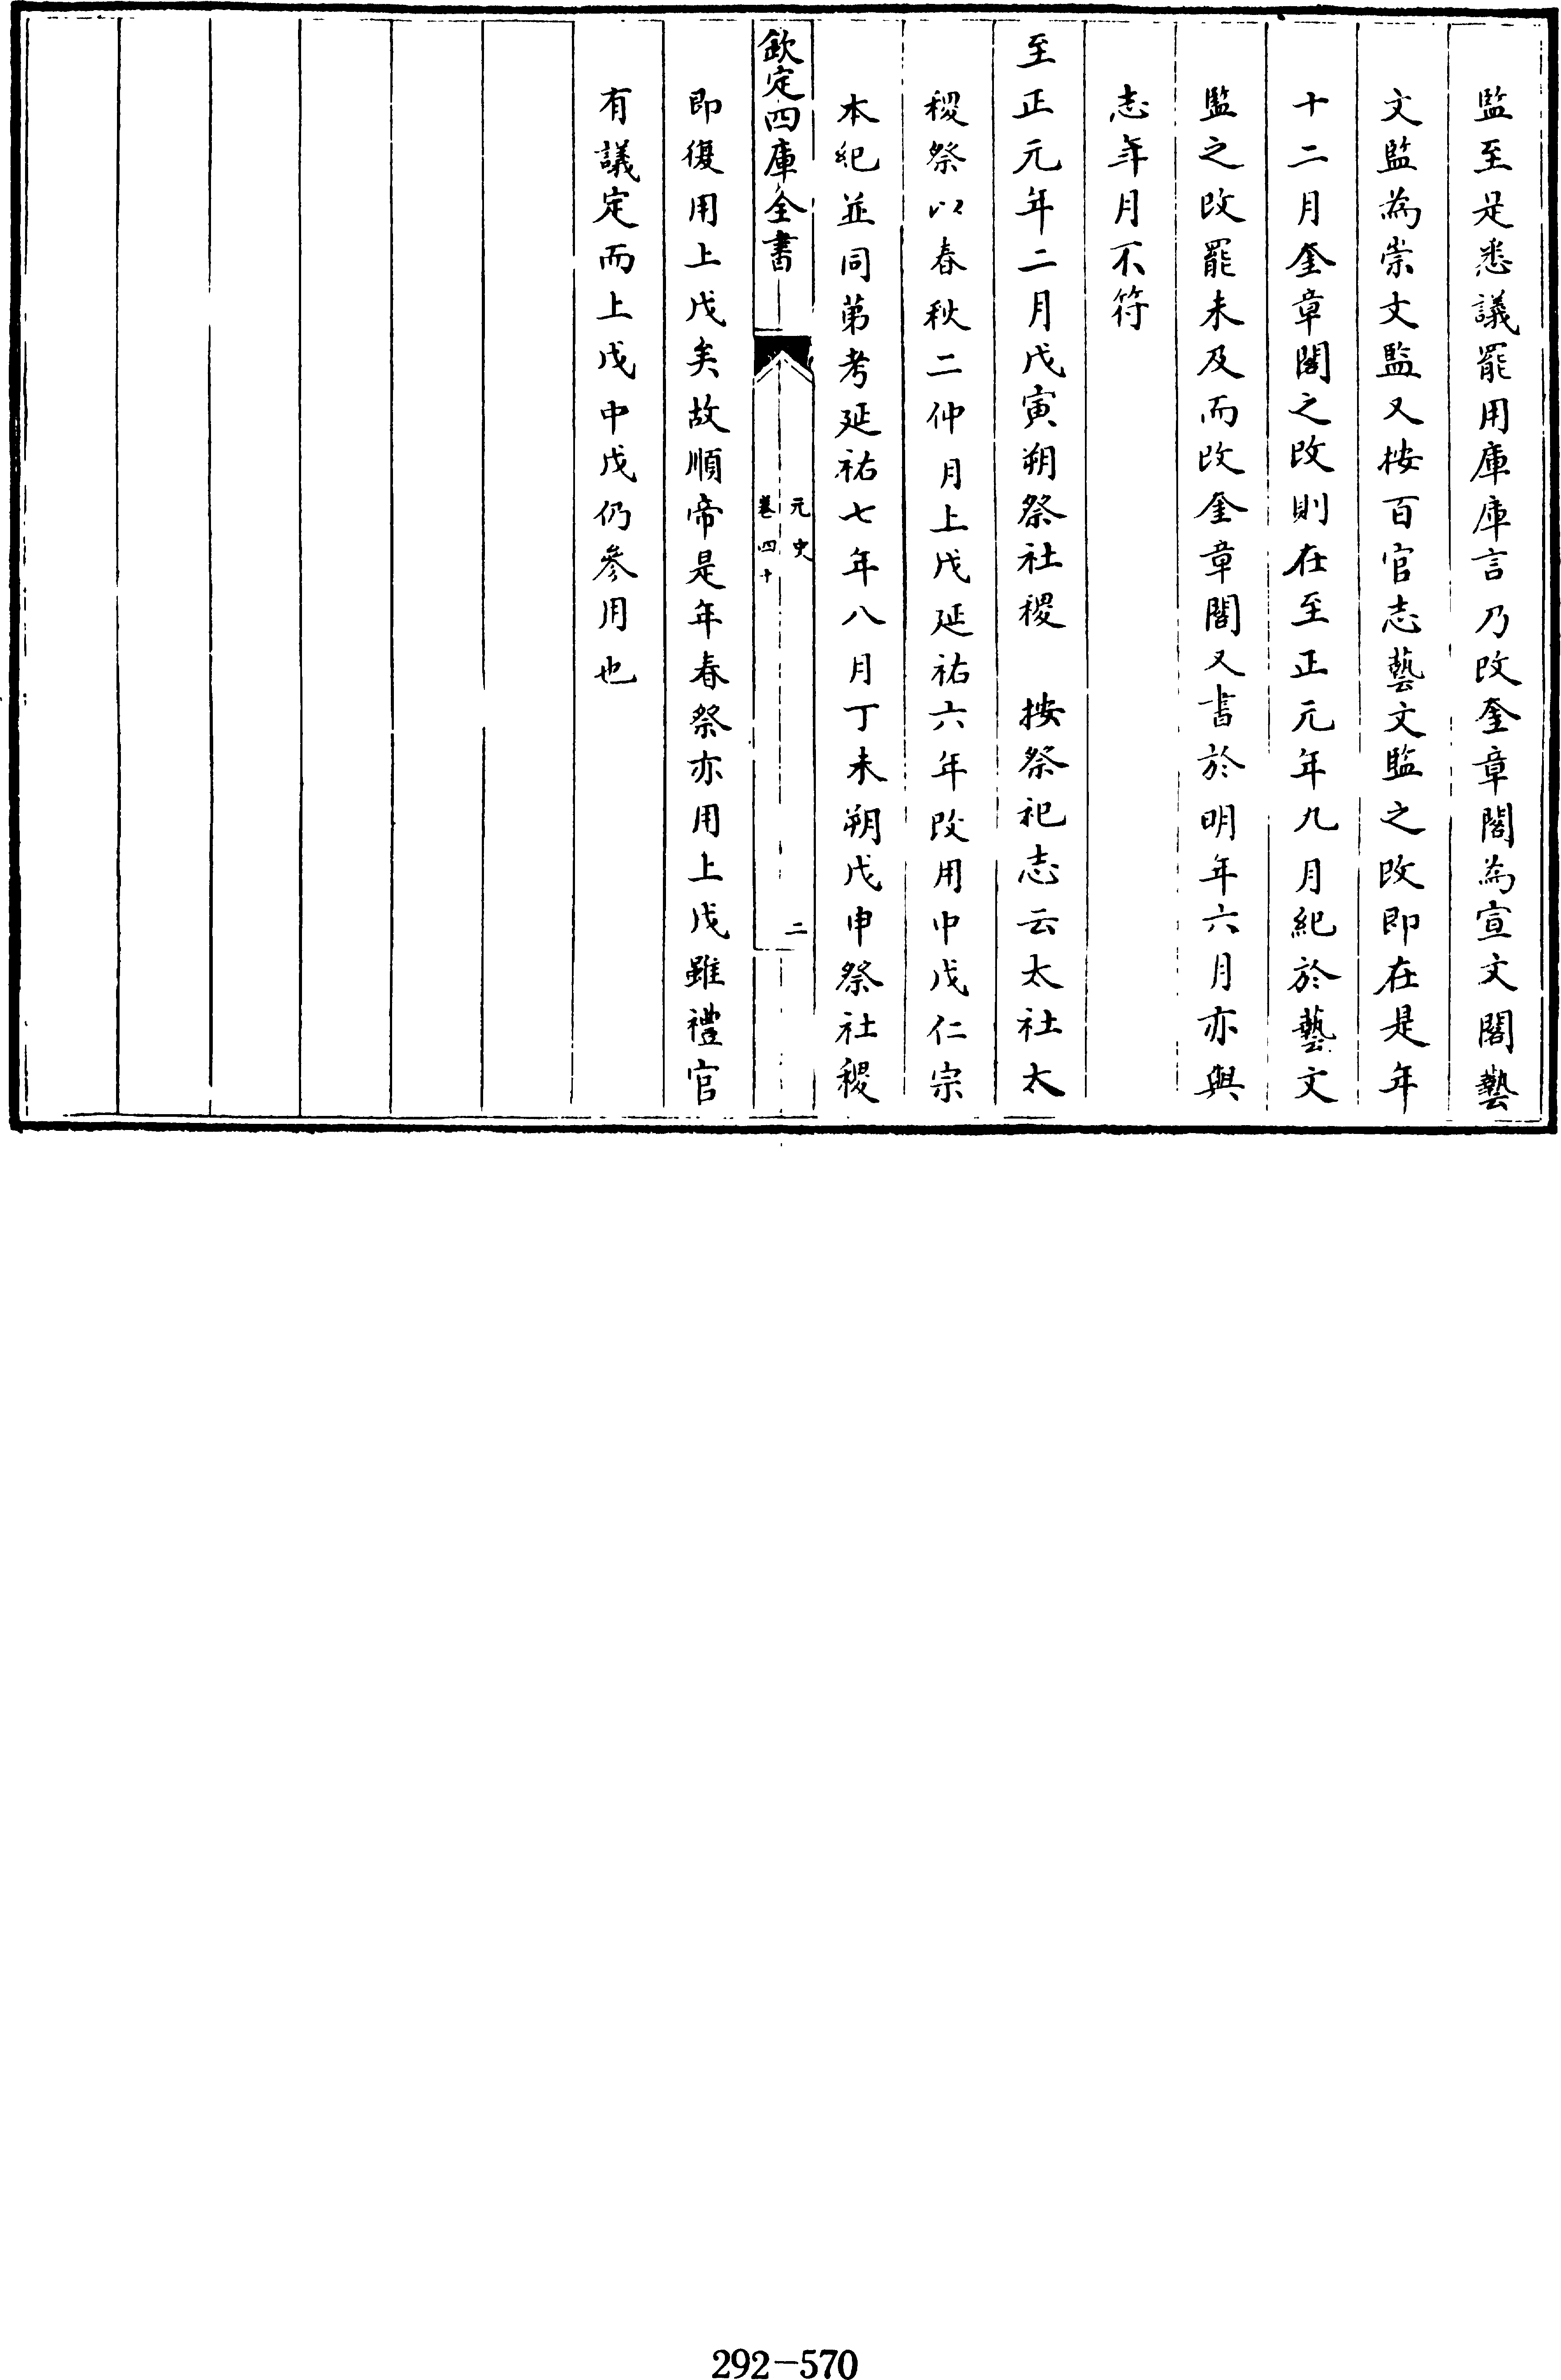 監至是悉議罷用庫庫言乃改奎章閣為宣文閣藝
文監為崇文監又按百官志藝文監之改即在是年
十二月奎章閣之改則在至正元年九月紀於藝文
監之改罷未及而改奎章閣又書於明年六月亦與
志年月不符
至正元年二月戊寅朔祭社稷　按祭祀志云太社太
稷祭以春秋二仲月上戊延祐六年改用中戊仁宗
本紀並同第考延祐七年八月丁未朔戊申祭社稷
欽定四庫全書
元史
卷四十
二
即復用上戊矣故順帝是年春祭亦用上戊雖禮官
有議定而上戊中戊仍參用也
292-570